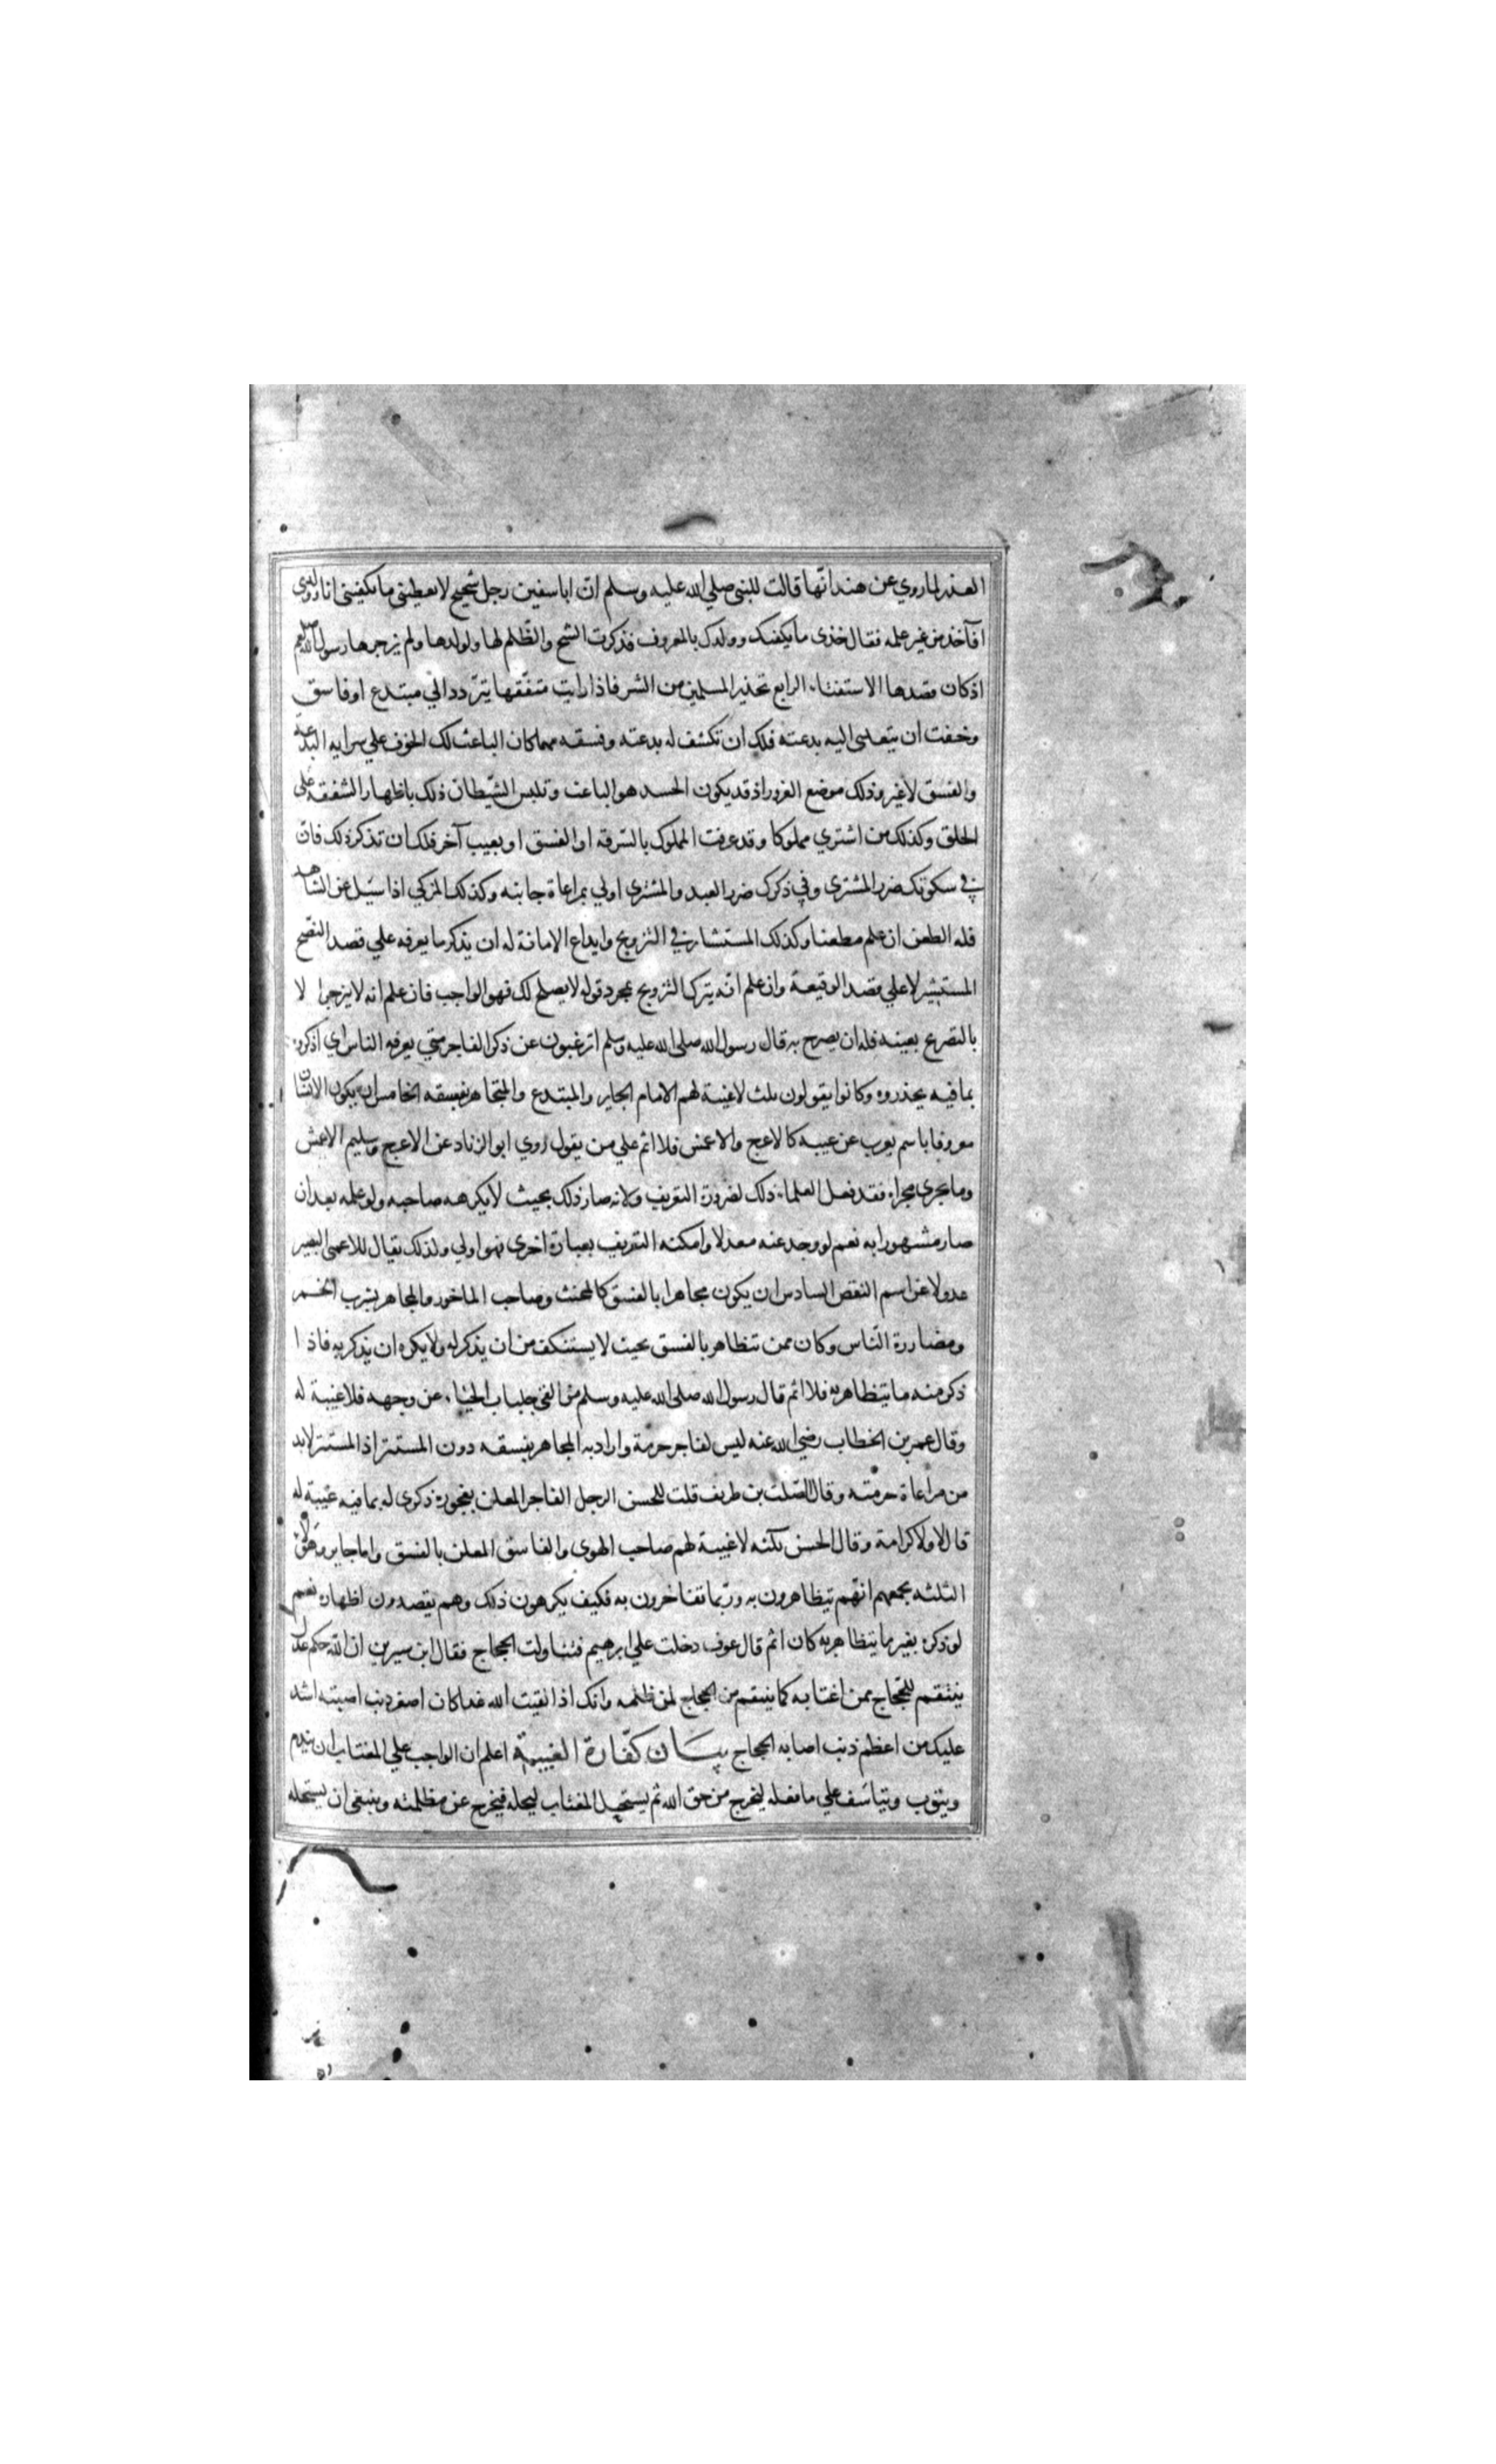 العذر لما روي عن هند انّها قالت للنبى صلي الله عليه وسلم انّ اباسفين رجل شحيح لا يعطينى ما يكفينى انا وولدى
افآخذ من غير علمه فقال خذى ما يكفيك وولدك بالمعروف فذكرت الشح والظّلم لها ولولدها ولم يزجرها رسول الله صلعم
اذ كان قصدها الاستفتاء الرابع تحذير المسلمين من الشر فاذا رايت متفقها يتردد الي مبتدع او فاسق
وخفت ان يتعدى اليه بدعته فلك ان تكشف له بدعته وفسقه مهما كان الباعث لك الخوف علي سرايه البدعة
والفسق لا غير وذلك موضع الغرور اذ قد يكون الحسد هو الباعث وتلبس الشّيطان ذلك باظهار الشفقه على
الخلق وكذلك من اشتري مملوكا وقد عرفت المملوك بالسّرقه او الفسق او بعيب آخر فلك ان تذكر ذلك فانّ
في سكوتك ضرر المشترى وفي ذكرك ضرر العبد والمشترى اولي بمراعاة جانبه وكذلك المزكي اذا سيل عن الشاهد
فله الطعن ان علم مطعنا وكذلك المستشار في التزويج وايداع الامانة له ان يذكر ما يعرفه علي قصد النصح
المستشير لا علي قصد الوقيعة وان علم انّه يترك التزويج بمجرد قوله لا يصلح لك فهو الواجب فان علم انه لا ينزجر الا
بالتصريح بعينه فله ان يصرح به قال رسول الله صلى الله عليه وسلم اترغبون عن ذكر الفاجر متي يعرفه الناس اي اذكروه
بما فيه يحذروه وكانوا يقولون ثلث لا غيبة لهم الامام الجاير والمبتدع والمتجاهر بفسقه الخامس ان يكون الانسان
معروفا باسم يعرب عن عيبه كالاعرج والاعمش فلا اثم علي من يقول روي ابو الزناد عن الاعرج وسليم الاعمش
وما يجري مجراه فقد فعل العلماء ذلك لضرورة التعريف ولانه صار ذلك بحيث لا يكرهه صاحبه ولو علمه بعد ان
صار مشهورا به نعم لو وجد عنه معدلا وامكنه التعريف بعبارة اخرى فهو اولي ولذلك يقال للاعمى البصير
عدولا عن اسم النقص السادس ان يكون مجاهرا بالفسق كالمخنث وصاحب الماخور والمجاهر بشرب الخمر
ومضاررة النّاس وكان ممن تتظاهر بالفسق بحيث لا يستنكف من ان يذكر له ولا يكره ان يذكر به فاذا
ذكر منه ما يتظاهر به فلا اثم قال رسول الله صلى الله عليه وسلم من القى جلباب الحيا عن وجهه فلا غيبة له
وقال عمر بن الخطاب رضي الله عنه ليس لفاجر حرمة واراد به المجاهر بفسقه دون المستتر اذ المستتر لا بد
من مراعاة حرمته وقال الصّلت بن طريف قلت للحسن الرجل الفاجر المعلن بفجوره ذكرى له بما فيه غيبة له
قال لا ولا كرامة وقال الحسن ثلثه لا غيبة لهم صاحب الهوى والفاسق المعلن بالفسق وامام جاير وهؤلاء
الثلثه يجمعهم انّهم يتظاهرون به وربّما تفاخرون به فكيف يكرهون ذلك وهم يقصدون اظهاره نعم
لو ذكره بغير ما يتظاهر به كان اثم قال عوف دخلت علي ابن سيرين فتناولت الحجاج فقال ابن سيرين ان الله حكم عدل
ينتقم للحجّاج ممن اغتابه كما ينتقم من الحجاج لمن ظلمه وانك اذا لقيت الله غدا كان اصغر ذنب اصبته اشد
عليك من اعظم ذنب اصابه الحجاج بيان كفّارة الغيبة اعلم ان الواجب علي المغتاب ان يندم
ويتوب ويتاسّف علي ما فعله ليخرج من حق الله ثم يستحل المغتاب ليحله فيخرج عن مظلمته وينبغى ان يستحله